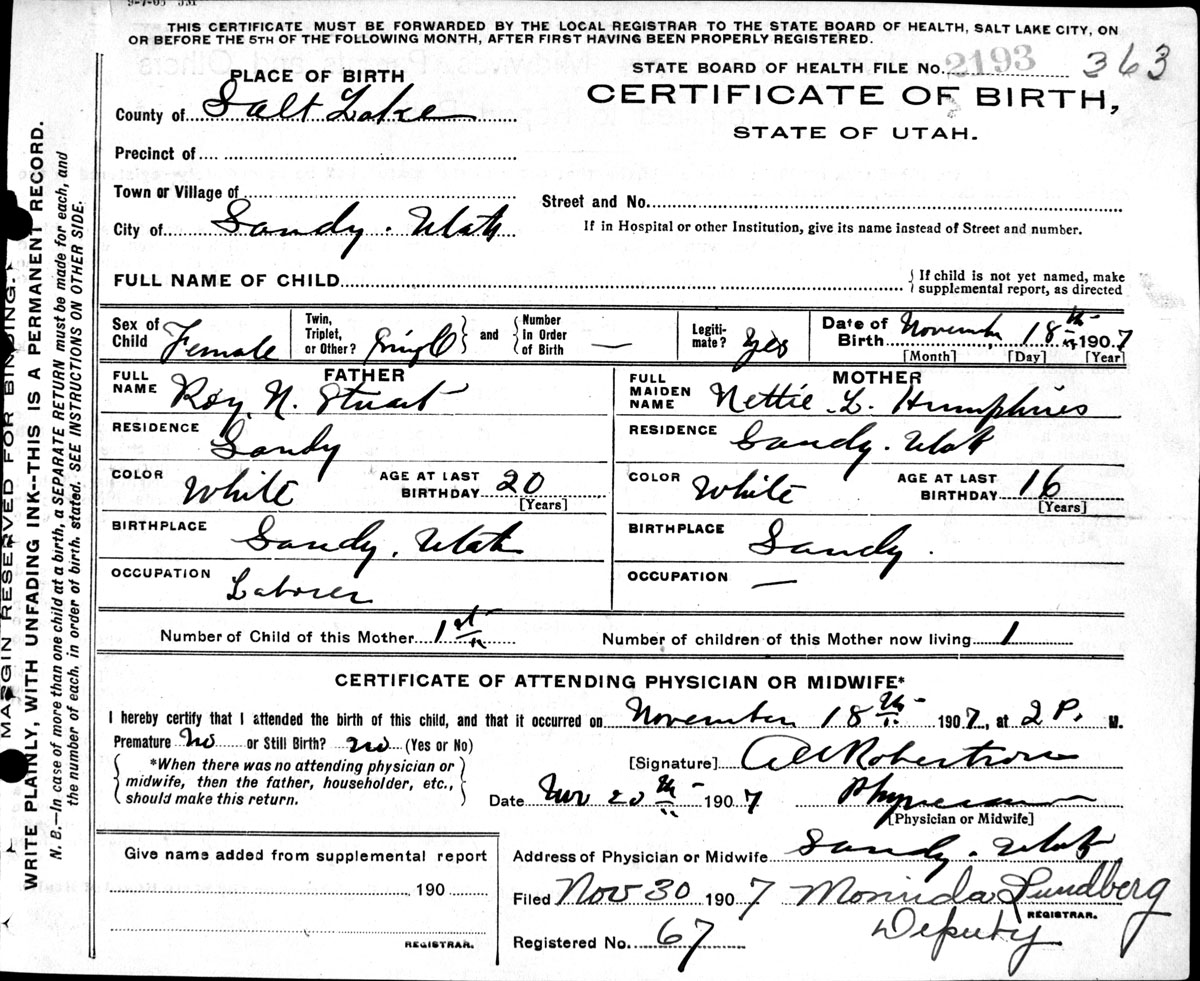 THIS CERTIFICATE MUST BE FORWARDED BY THE LOCAL REGISTRAR TO THE STATE BOARD OF HEALTH, SALT LAKE CITY, ON
OR BEFORE THE 5TH OF THE FOLLOWING MONTH, AFTER FIRST HAVING BEEN PROPERLY REGISTERED.
PLACE OF BIRTH
STATE BOARD OF HEALTH FILE No. 2193 363
County of Salt Lake
CERTIFICATE OF BIRTH,
STATE OF UTAH.
Precinct of
Town or Village of
Street and No.
City of Sandy. Utah
If in Hospital or other Institution, give its name instead of Street and number.
FULL NAME OF CHILD
If child is not yet named, make
supplemental report, as directed
Sex of Child Female
Twin, Triplet, or Other? Single and Number In Order of Birth —
Legiti-mate? Yes
Date of Birth November 18th 1907
[Month] [Day] [Year]
FATHER
FULL NAME Roy N. Stuart
RESIDENCE Sandy
COLOR White AGE AT LAST BIRTHDAY 20
[Years]
BIRTHPLACE Sandy, Utah
OCCUPATION Laborer
MOTHER
FULL MAIDEN NAME Nettie L. Humphries
RESIDENCE Sandy. Utah
COLOR White AGE AT LAST BIRTHDAY 16
[Years]
BIRTHPLACE Sandy.
OCCUPATION —
Number of Child of this Mother 1st Number of children of this Mother now living 1
CERTIFICATE OF ATTENDING PHYSICIAN OR MIDWIFE*
I hereby certify that I attended the birth of this child, and that it occurred on November 18th 1907, at 2 P. M.
Premature No or Still Birth? no (Yes or No)
*When there was no attending physician or
midwife, then the father, householder, etc.,
should make this return.
[Signature] Robertson
Date Nov 20th 1907 Physician
[Physician or Midwife]
Give name added from supplemental report
190
REGISTRAR.
Address of Physician or Midwife Sandy. Utah
Filed Nov 30 1907 Lundberg
REGISTRAR.
Deputy
Registered No. 67
MARGIN RESERVED FOR BINDING.
WRITE PLAINLY, WITH UNFADING INK--THIS IS A PERMANENT RECORD.
N. B.—In case of more than one child at a birth, a SEPARATE RETURN must be made for each, and
the number of each, in order of birth, stated. SEE INSTRUCTIONS ON OTHER SIDE.